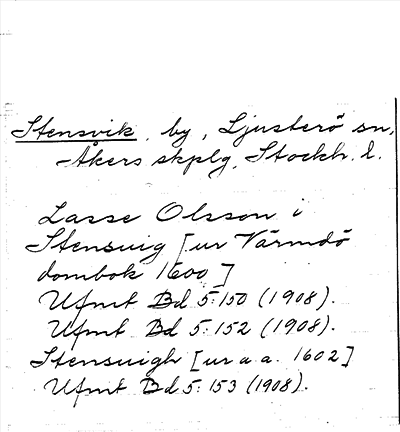 Stensvik, by, Ljusterö sn,
Åkers skplg, Stockh. l.
Lasse Olsson i
Stensuig [ur Värmdö
dombok 1600]
Ufmt Bd 5:150 (1908).
Ufmt Bd 5:152 (1908).
Stensuigh [ur a a. 1602]
Ufmt Bd 5:153 (1908).